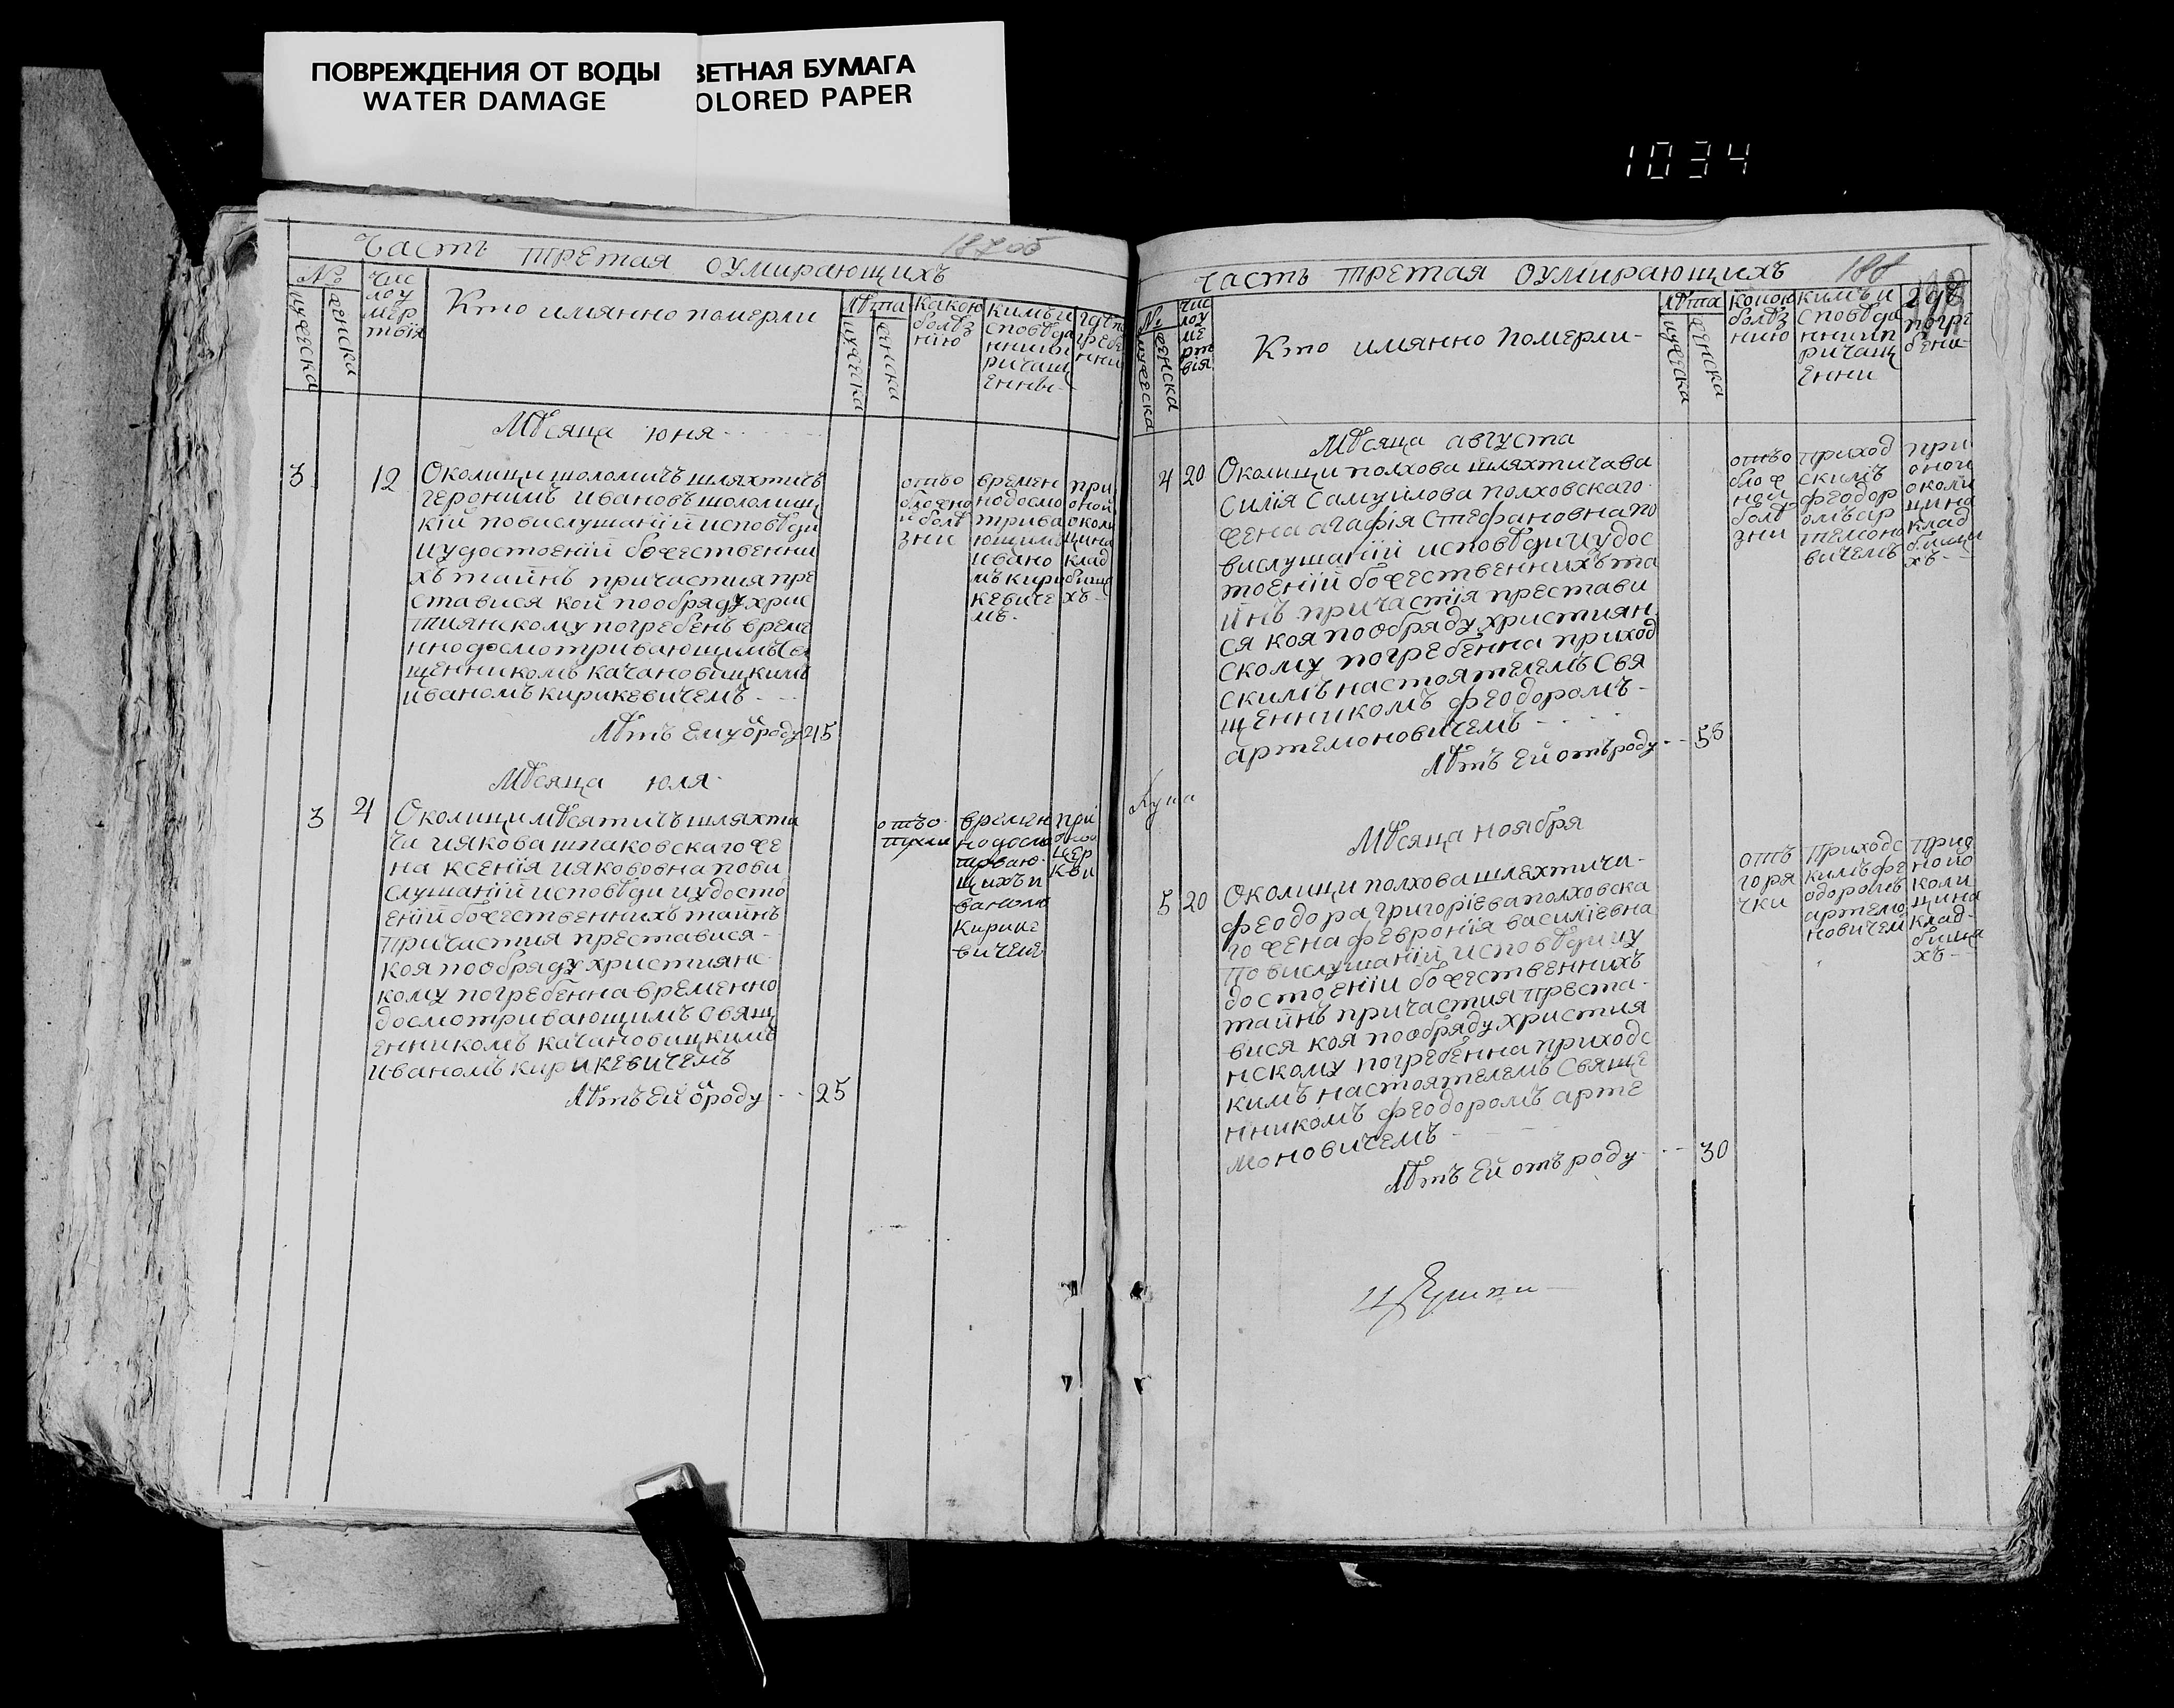 ПОВРЕЖДЕНИЯ ОТ ВОДЫ
WATER DAMAGE
ВЕТНАЯ БУМАГА
OLORED PAPER
1034
187об
Часть третая оумирающихъ
№
мужеска
женска
Чис
лоу
мер
твія
Кто имянно померли
Лѣта
мужеска
женска
какою
болѣз
нію
кимъи
сповѣда
нниии
ричащ
енны
Мѣсяца юня
3
12
Околици шоломичъ шляхтичъ
геронимъ ивановъ шоломиц
кій повислушаній исповѣди
иудостоеній божественни
хъ таинъ причастия пре
ставися кой пообряду хрис
тиянскому погребенъ време
ннодосмотривающимъ свя
щенникомъ качановицкимъ
иваномъ кирикевичемъ
Лѣтъ ему ѿроду 45
отъо
бложно
й болѣ
зни
времен
нодосмо
трива
ющимъ
ивано
мъ кири
кевиче
мъ
при
оной
околи
цина
клад
бища
хъ
Мѣсяца юля
3
4
Околици мѣсятичъ шляхти
чи ияковашпаковскаго же
на ксенія ияковна пови
слушаній исповѣди иудосто
еній божественнихъ таинъ
причастия преставися
коя пообряду християнс
кому погребенна временно
досмотривающимъ свящ
енникомъ качановицкимъ
иваномъ кирикевичемъ
Лѣтъ ей ѿроду 25
отъо
пухли
времен
нодосм
триваю
щихъ и
ваномъ
кирике
вичем
при
оной
цер
кви
188
Часть третая оумирающихъ
№
мужеска
женска
Чис
лоу
ме
рт
вія
Кто имянно померли
Лѣта
мужеска
женска
коиою
болѣз
нию
кимъ и
сповѣда
нниип
ричащ
енни
гдѣ
погре
бени
Мѣсяца августа
4 20
Околици полхова шляхтича ва
силія самуйлова полховскаго
жена агафія стефановна по
вислушаній исповѣди иудос
тоеній божественнихъ та
инъ причастія престави
ся коя пообряду християн
скому погребенна приход
скимъ настоятелемъ свя
щенникомъ феодоромъ
артемоновичемъ
Лѣтъ ей отъроду 58
отъо
блож
ной
болѣ
зни
приход
скимъ
феодор
омъ ар
темоно
вичемъ
при
оной
околи
цина
клад
бищи
хъ
Мѣсяца ноября
5 20
Околици полхова шляхтича
феодора григоріева полховска
го жена февронія василіевна
повислушаній исповѣди иу
достоеніи божественнихъ
таинъ причастия преста
вися коя пообряду християн
нскому погребенна приходс
кимъ настоятелемъ свяще
нникомъ феодоромъ арте
моновичемъ
Лѣтъ ей отъ роду 30
отъ
горя
чки
приходс
кимъ фе
одоромъ
артемо
новичем
при о
ной о
коли
цина
клад
бища
хъ